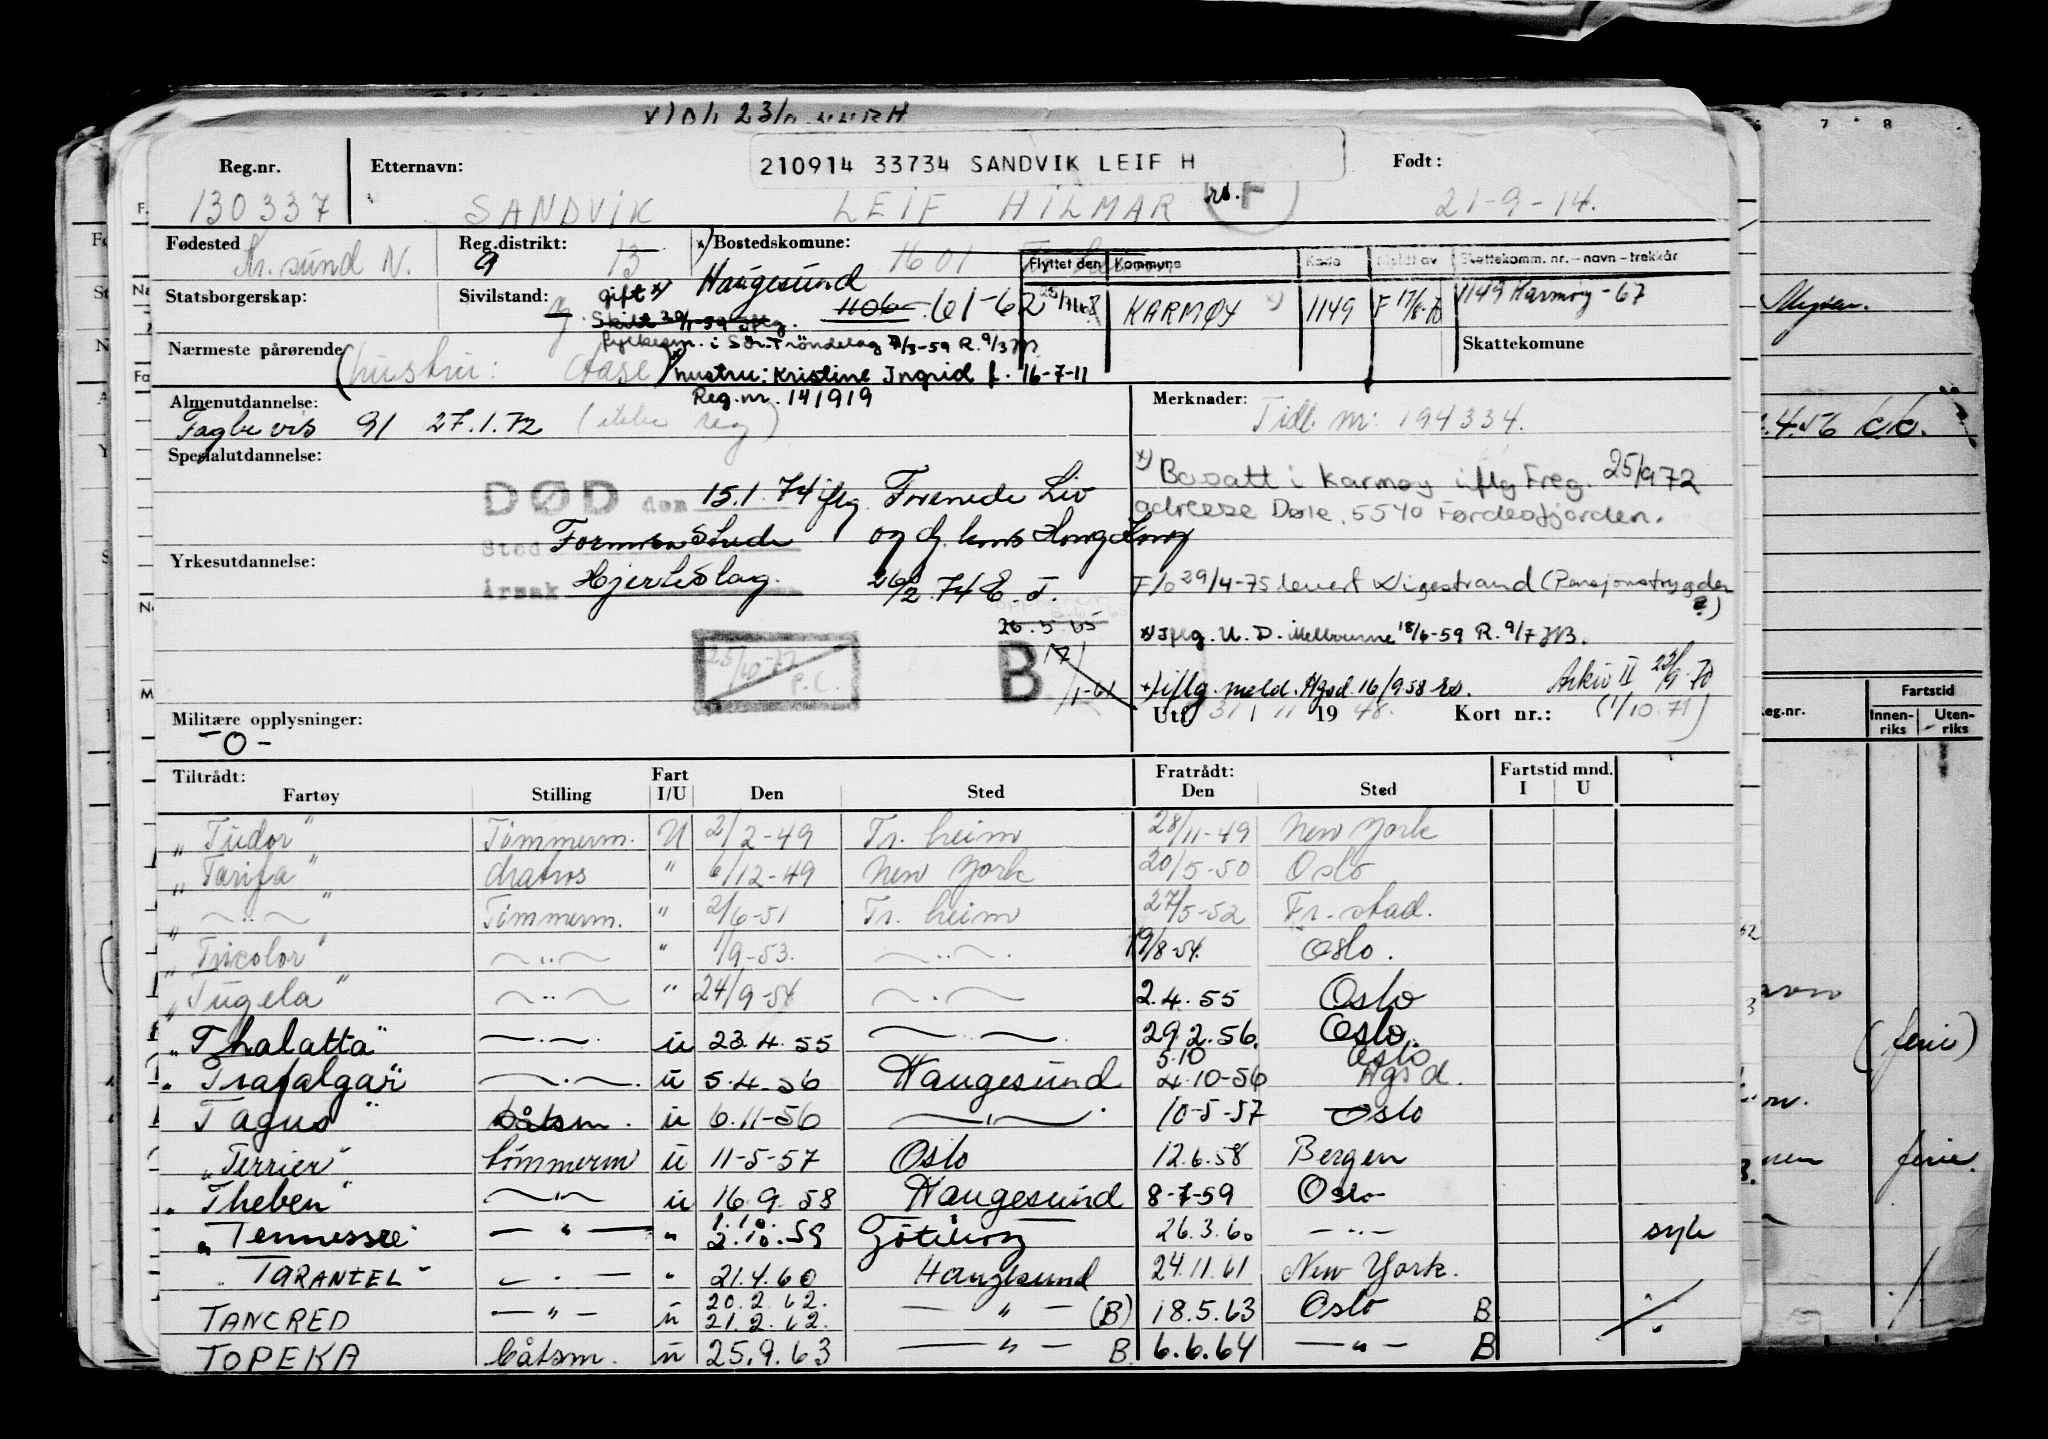 210914 33734 SANDVIK LEIF H
Reg.nr. Etternavn: Født:
130337 SANDVIK LEIF HILMAR rs. F 21-9-14.
Fødested Kr.sund N. Reg.distrikt: 13 9 x) Bostedskomune: 1601
Haugesund 1106 - 61-62
Flyttet den Kommune Kode Meldt av Skattekomm. nr. – navn – trekkår
KARMØY x) 1149 F 17/8-70 1149 Karmøy - 67
Skattekomune
Statsborgerskap: Sivilstand: g. gift x)
Skilt 30/1-59 iflg.
fylkesm. i Sør-Trøndelag 7/3-59 R. 9/3
Nærmeste pårørende (hustru: Aase) x) hustru: Kristine Ingrid f. 16-7-11
Reg.nr. 141919
Almenutdannelse: Merknader:
Fagbevis 91 27.1.72 (ikke reg) Tidl. nr: 194334.
Spesialutdannelse:
x) Bosatt i Karmøy iflg Freg. 25/9 72
adresse Døle, 5540 Førdesfjorden.
DØD den 15.1.74 iflg. Forenede Liv
Sted Formosa Stredet og G. kons Hong Kong
Yrkesutdannelse:
Årsak Hjerteslag. 26/2.74 E.T.
F/o 29/4-75 levert Wigestrand (Pensjonstrygden ?)
26.5.65
x) Iflg. U.D. Melbourne 18/6-59 R. 9/7
25/10-77 P.C.
B 17/1-61
+) iflg. meld. Hgsd. 16/9 58 rs. Arkiv II 22/9-70
Utf 31/11 1948. Kort nr.: (1/10.71)
Militære opplysninger:
-0-
Tiltrådt: Fart Fratrådt: Fartstid mnd.
Fartøy Stilling I/U Den Sted Den Sted I U
"Tudor" Tømmerm. U 2/2-49 Tr.heim 28/11-49 New York
"Tarifa" Matros " 6/12-49 New York 20/5-50 Oslo
" — " — " Tømmerm. " 2/6-51 Tr.heim 27/5-52 Fr.stad.
"Tricolor" — " — " 1/9-53. — " — 19/8-54. Oslo.
"Tugela" — " — " 24/9-54 — " — 2.4.55 Oslo
"Thalatta" — " — u 23.4.55 — " — 29.2.56. Oslo.
"Trafalgar" — " — u 5.4.56 Haugesund 5.10 4.10-56 Oslo Hgsd.
"Tagus" båtsm. u 6.11-56 — " — 10-5-57 Oslo
"Terrier" tømmerm u 11-5-57 Oslo 12.6.58 Bergen
"Theben" — " — u 16.9.58 Haugesund 8-7-59 Oslo
"Tennessee" — " — " 1.10. 2.10.59 Göteborg 26.3.60 — " — syk
"TARANTEL" — " — " 21.4.60 Haugesund 24.11.61 New York.
TANCRED — " — u 20.2.62. 21.2.62. — " — (B) 18.5.63 Oslo B
TOPEKA båtsm. u 25.9.63 — " — B 6.6.64 — " — B
7 8
Mysen.
.4.56
Reg.nr. Fartstid
Innenriks Utenriks
(ferie)
ferie.